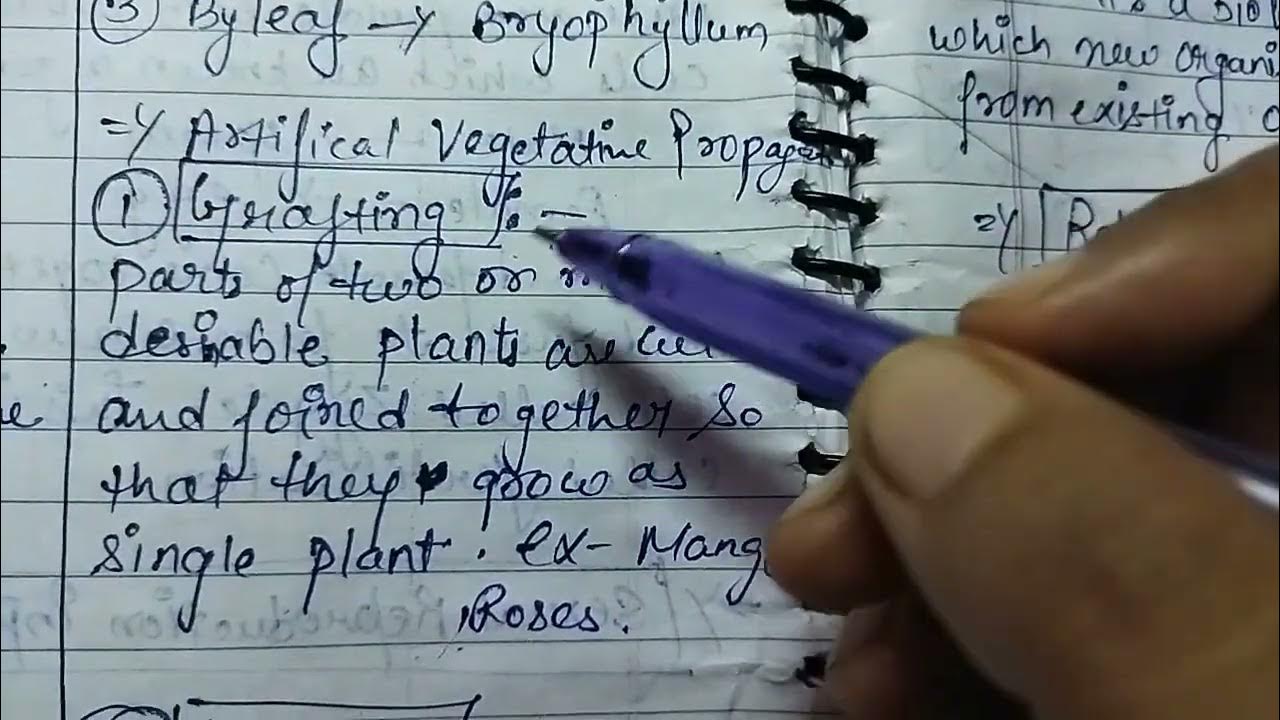 ③ By leaf → Bryophyllum
⇒ Artifical Vegetative Propaga
① Grafting :-
parts of two or
desirable plants are cu
and joined together so
that they grow as
single plant. ex- Mang
, Roses.
which new organi
from existing
⇒